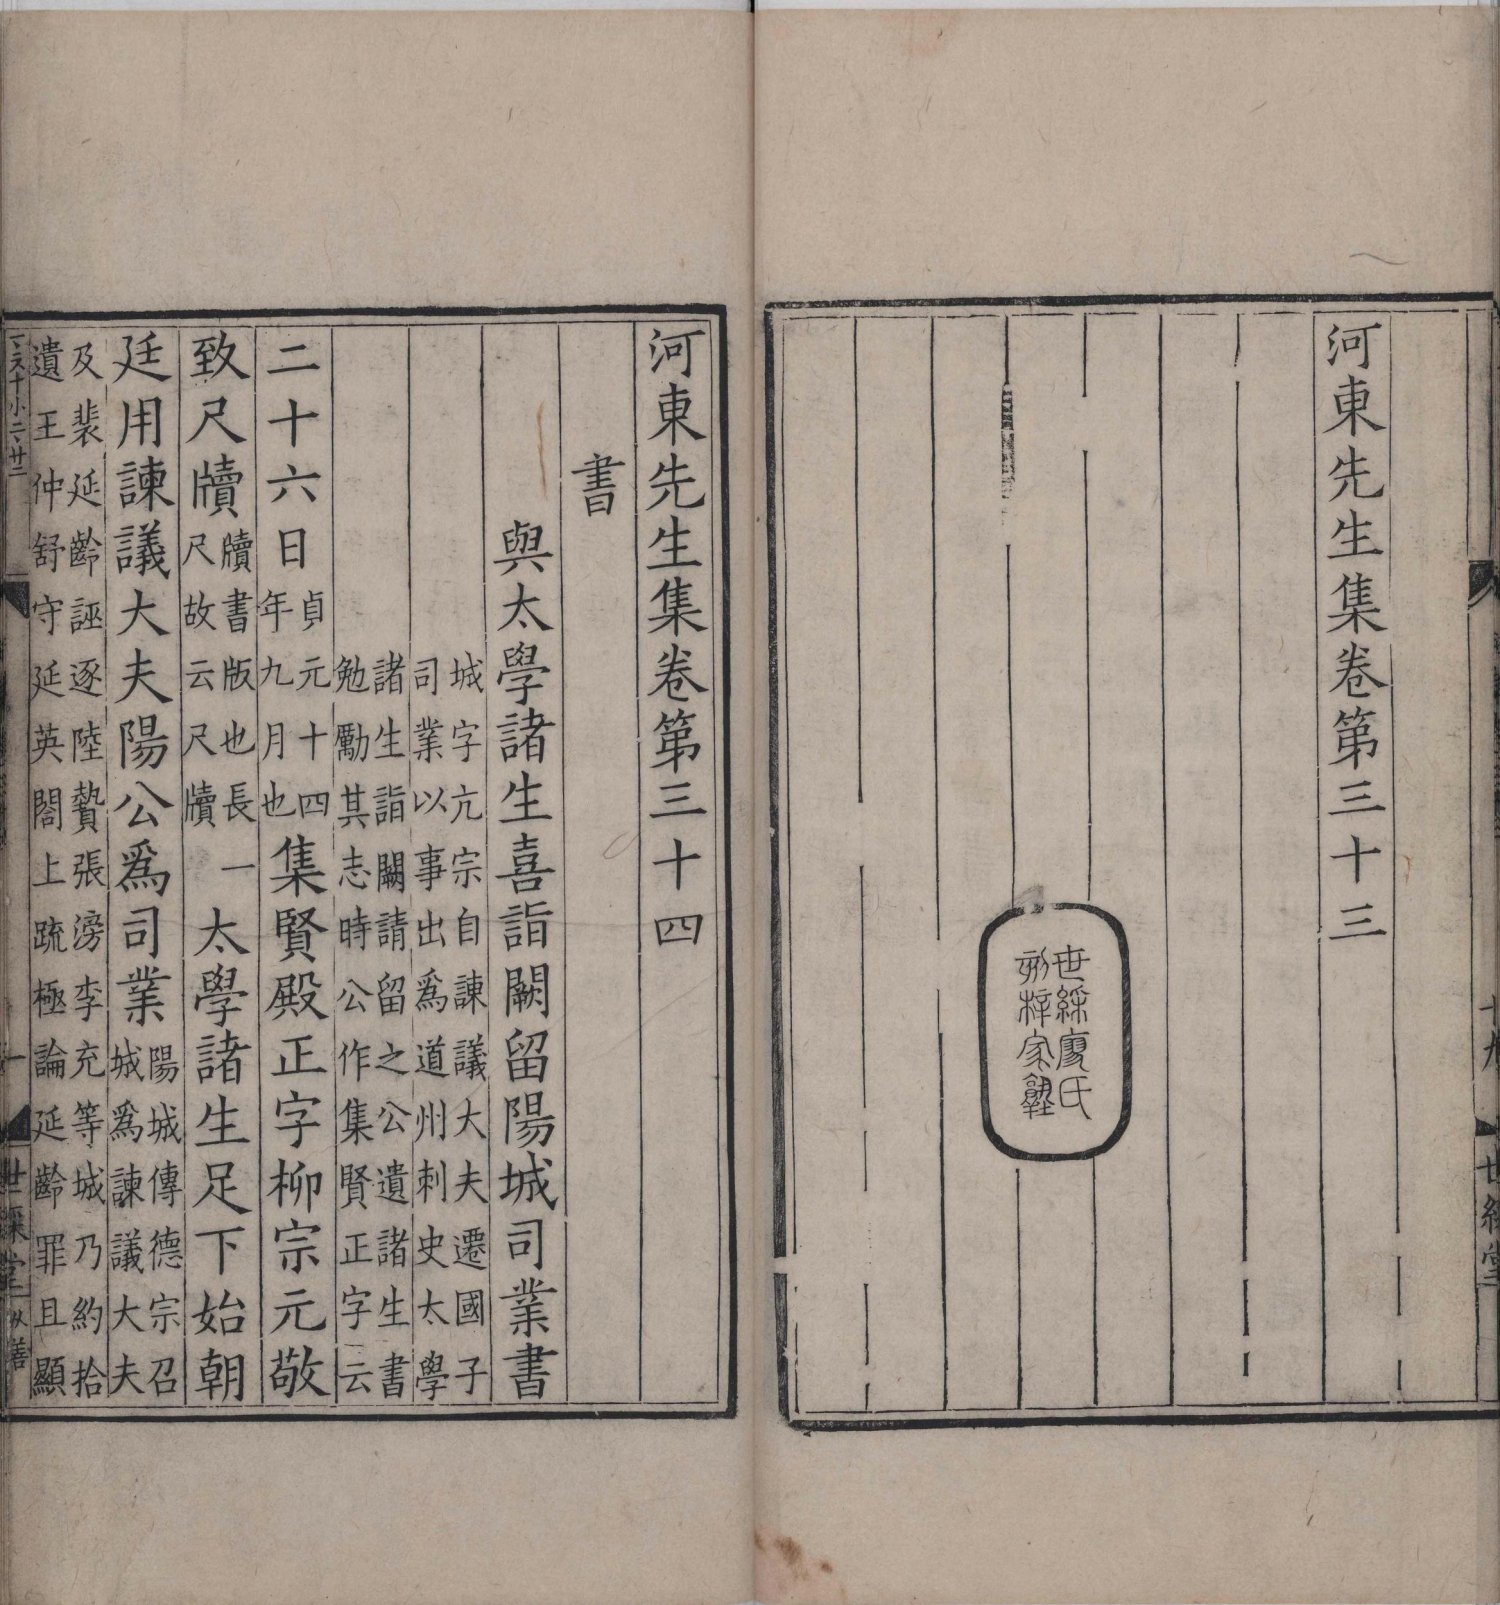 河東先生集卷第三十三
世綵廖氏
刻梓家塾
十九
世綵堂
河東先生集卷第三十四
書
與太學諸生喜詣闕留陽城司業書
城字亢宗自諫議大夫遷國子
司業以事出爲道州刺史太學
諸生詣闕請留之公遺諸生書
勉勵其志時公作集賢正字云
二十六日貞元十四年九月也集賢殿正字柳宗元敬
致尺牘牘書版也長一尺故云尺牘太學諸生足下始朝
廷用諫議大夫陽公爲司業陽城傳德宗召城爲諫議大夫
及裴延齡誣逐陸贄張滂李充等城乃約拾
遺王仲舒守延英閤上疏極論延齡罪且顯
一
世綵堂